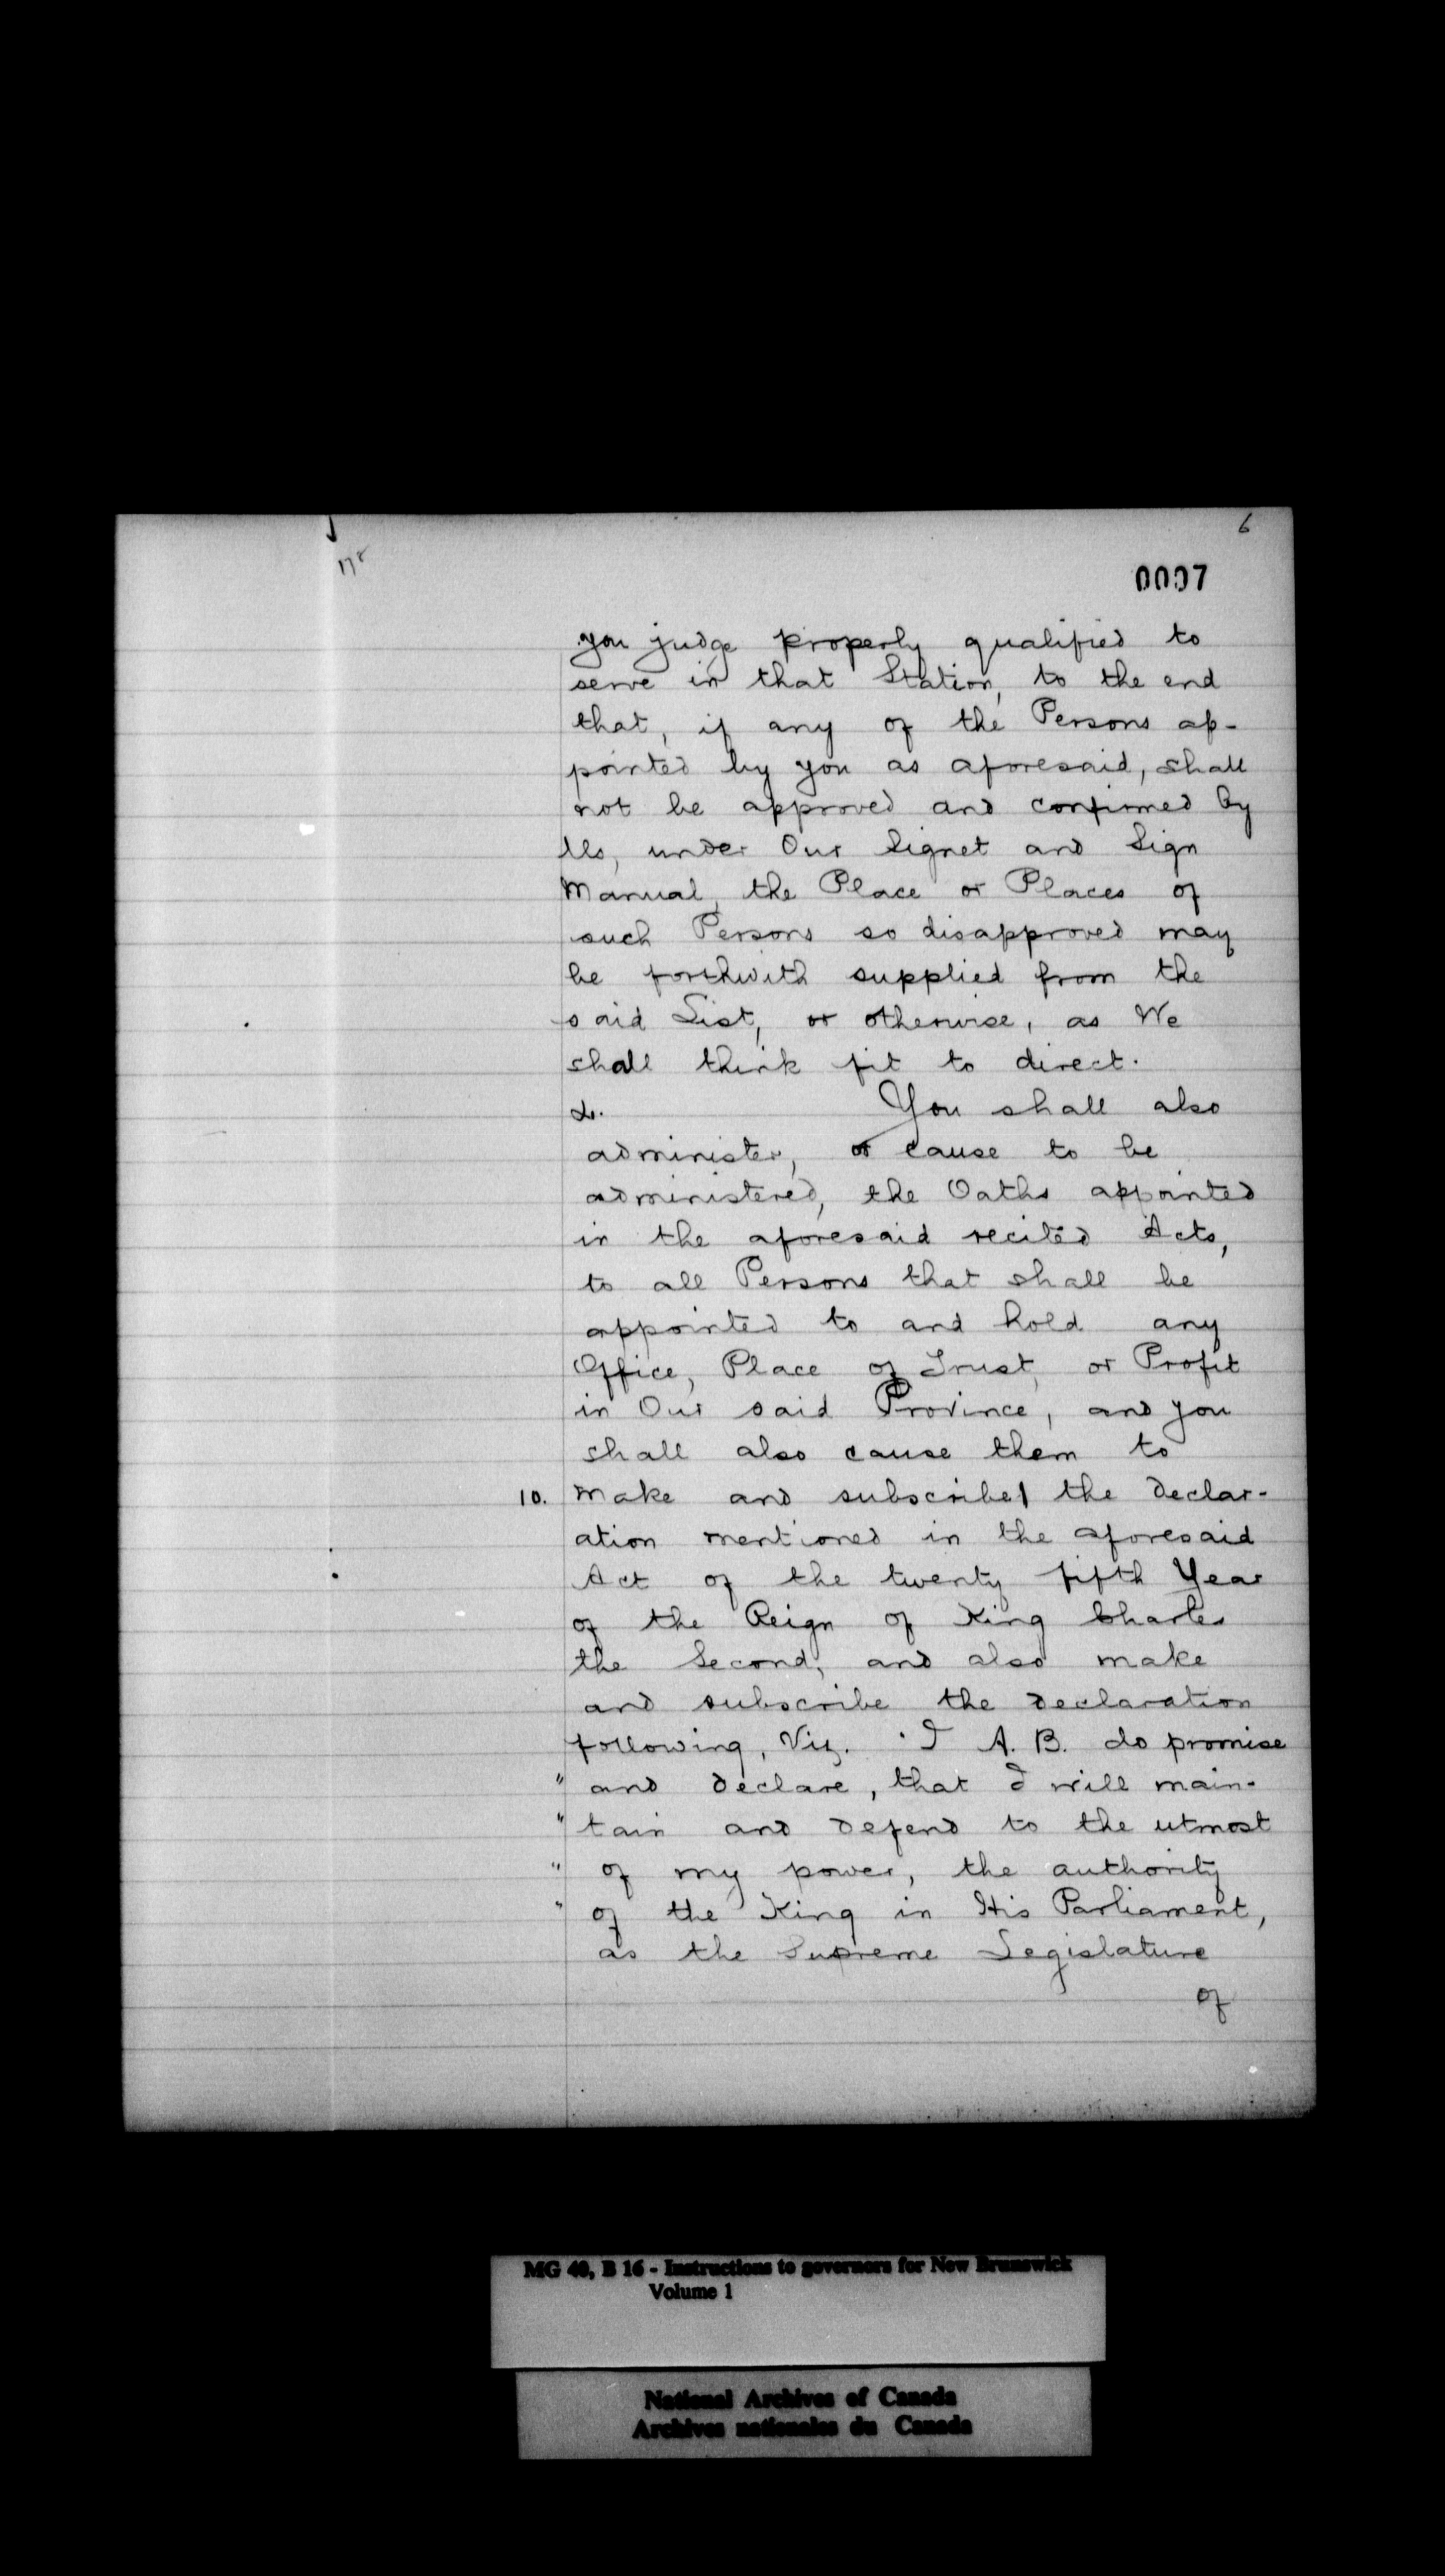 6
0007
you judge properly qualified to
serve in that Station, to the end
that, if any of the Persons ap-
pointed by you as aforesaid, shall
not be approved and confirmed by
Us, under Our Signet and Sign
Manual, the Place or Places of
such Persons so disapproved may
be forthwith supplied from the
said List, or otherwise, as We
shall think fit to direct.
You shall also
administer, or cause to be
administered, the Oaths appointed
in the aforesaid recited Acts,
to all Persons that shall be
appointed to and hold any
Office, Place of Trust, or Profit
in Our said Province, and you
shall also cause them to
10. make and subscribe the declar-
ation mentioned in the aforesaid
Act of the twenty fifth Year
of the Reign of King Charles
the Second, and also make
and subscribe the declaration
following, Viz. "I A. B. do promise
" and declare, that I will main-
" tain and defend to the utmost
" of my power, the authority
" of the King in His Parliament,
as the Supreme Legislature
of
MG 40, B 16 - Instructions to governors for New Brunswick
Volume 1
National Archives of Canada
Archives nationales du Canada